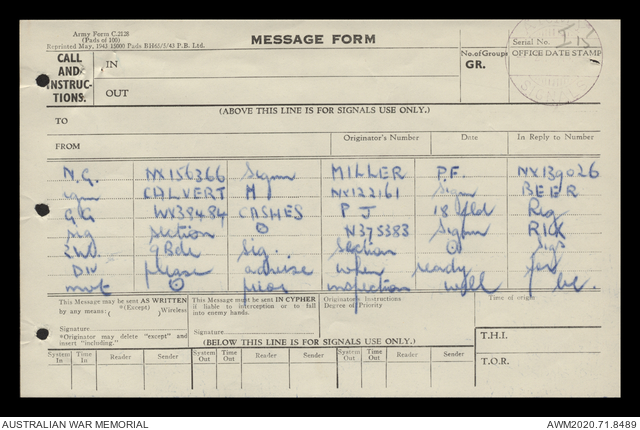 Army Form C.2128
(Pads of 100)
Reprinted May, 1943 15000 Pads B1665/3/43 P.B. Ltd.
MESSAGE FORM
Serial No. I 15
CALL
AND
INSTRUC-
TIONS.
IN
OUT
No. of Groups
GR.
OFFICE DATE STAMP
(ABOVE THIS LINE IS FOR SIGNALS USE ONLY.)
TO
FROM
Originator's Number
Date
In Reply to Number
N.G. NX156366 Sigmn MILLER P.F. NX139026
sgm CALVERT H NX122161 Sigmn BEER
G G WX38484 CASHES P J 18 fld Reg
sig section N375383 Sigmn RICK
2ND. 9Bde Sig. Section Sigs
DIV please advise when ready for
mvt prior inspection will be.
This Message may be sent AS WRITTEN
by any means: ( *(Except) ) Wireless
Signature
*Originator may delete "except" and
insert "including."
This Message must be sent IN CYPHER
if liable to interception or to fall
into enemy hands.
Signature
Originator's Instructions
Degree of Priority
Time of origin
(BELOW THIS LINE IS FOR SIGNALS USE ONLY.)
T.H.I.
T.O.R.
System In
Time In
Reader
Sender
System Out
Time Out
Reader
Sender
System Out
Time Out
Reader
Sender
AUSTRALIAN WAR MEMORIAL
AWM2020.71.8489